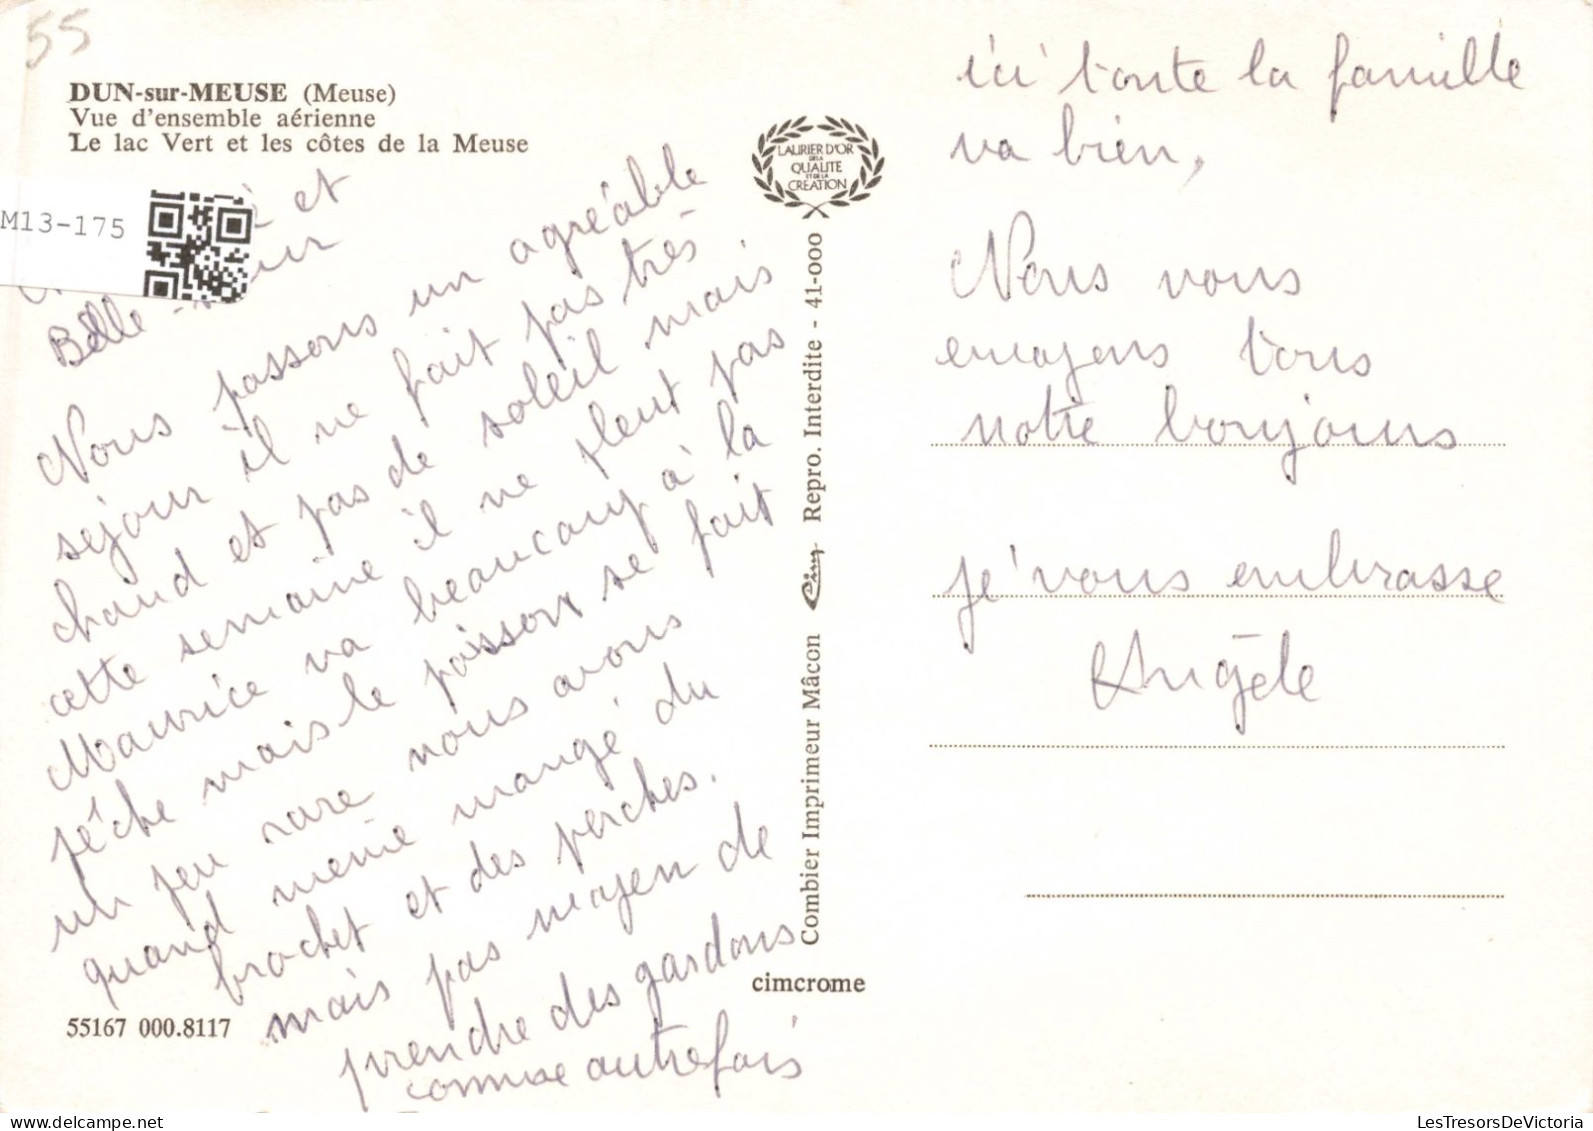 55
DUN-sur-MEUSE (Meuse)
Vue d'ensemble aérienne
Le lac Vert et les côtes de la Meuse
M13-175
et
Belle
Nous passons un agréable
séjour il ne fait pas très
chaud et pas de soleil mais
cette semaine il ne pleut pas
Maurice va beaucoup à la
pêche mais le poisson se fait
un peu rare nous avons
quand meme mangé du
brochet et des perches.
mais pas moyen de
prendre des gardons
comme autrefois
55167 000.8117
LAURIER D'OR
DE LA
QUALITE
ET DE LA
CREATION
Combier Imprimeur Mâcon Cim Repro. Interdite - 41-000
cimcrome
ici toute la famille
va bien,
Nous vous
envoyons tous
notre bonjours
je vous embrasse
Angèle
LesTresorsDeVictoria